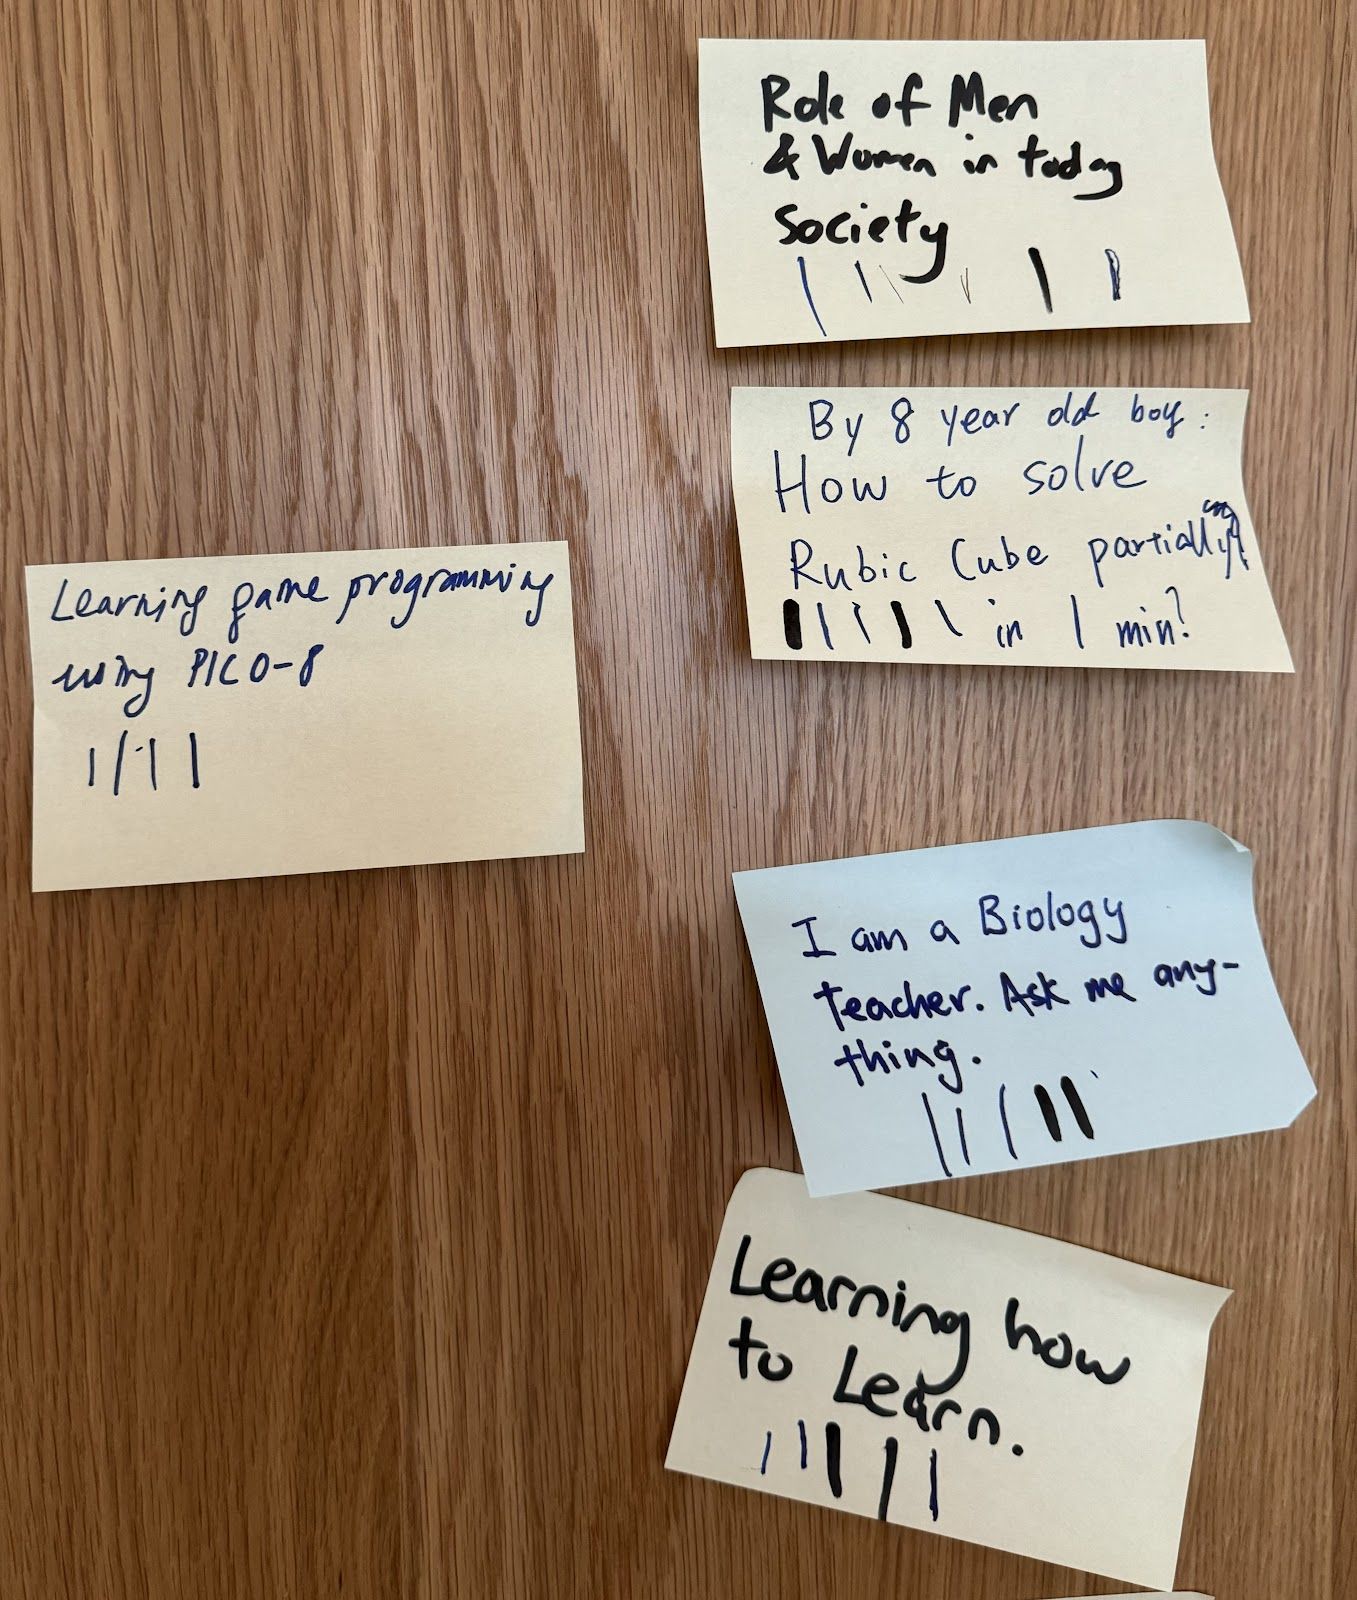 Role of Men
& Women in today
society
By 8 year old boy:
How to solve
Rubic Cube partially
in 1 min?
Learning game programming
using PICO-8
I am a Biology
teacher. Ask me any-
thing.
Learning how
to Learn.